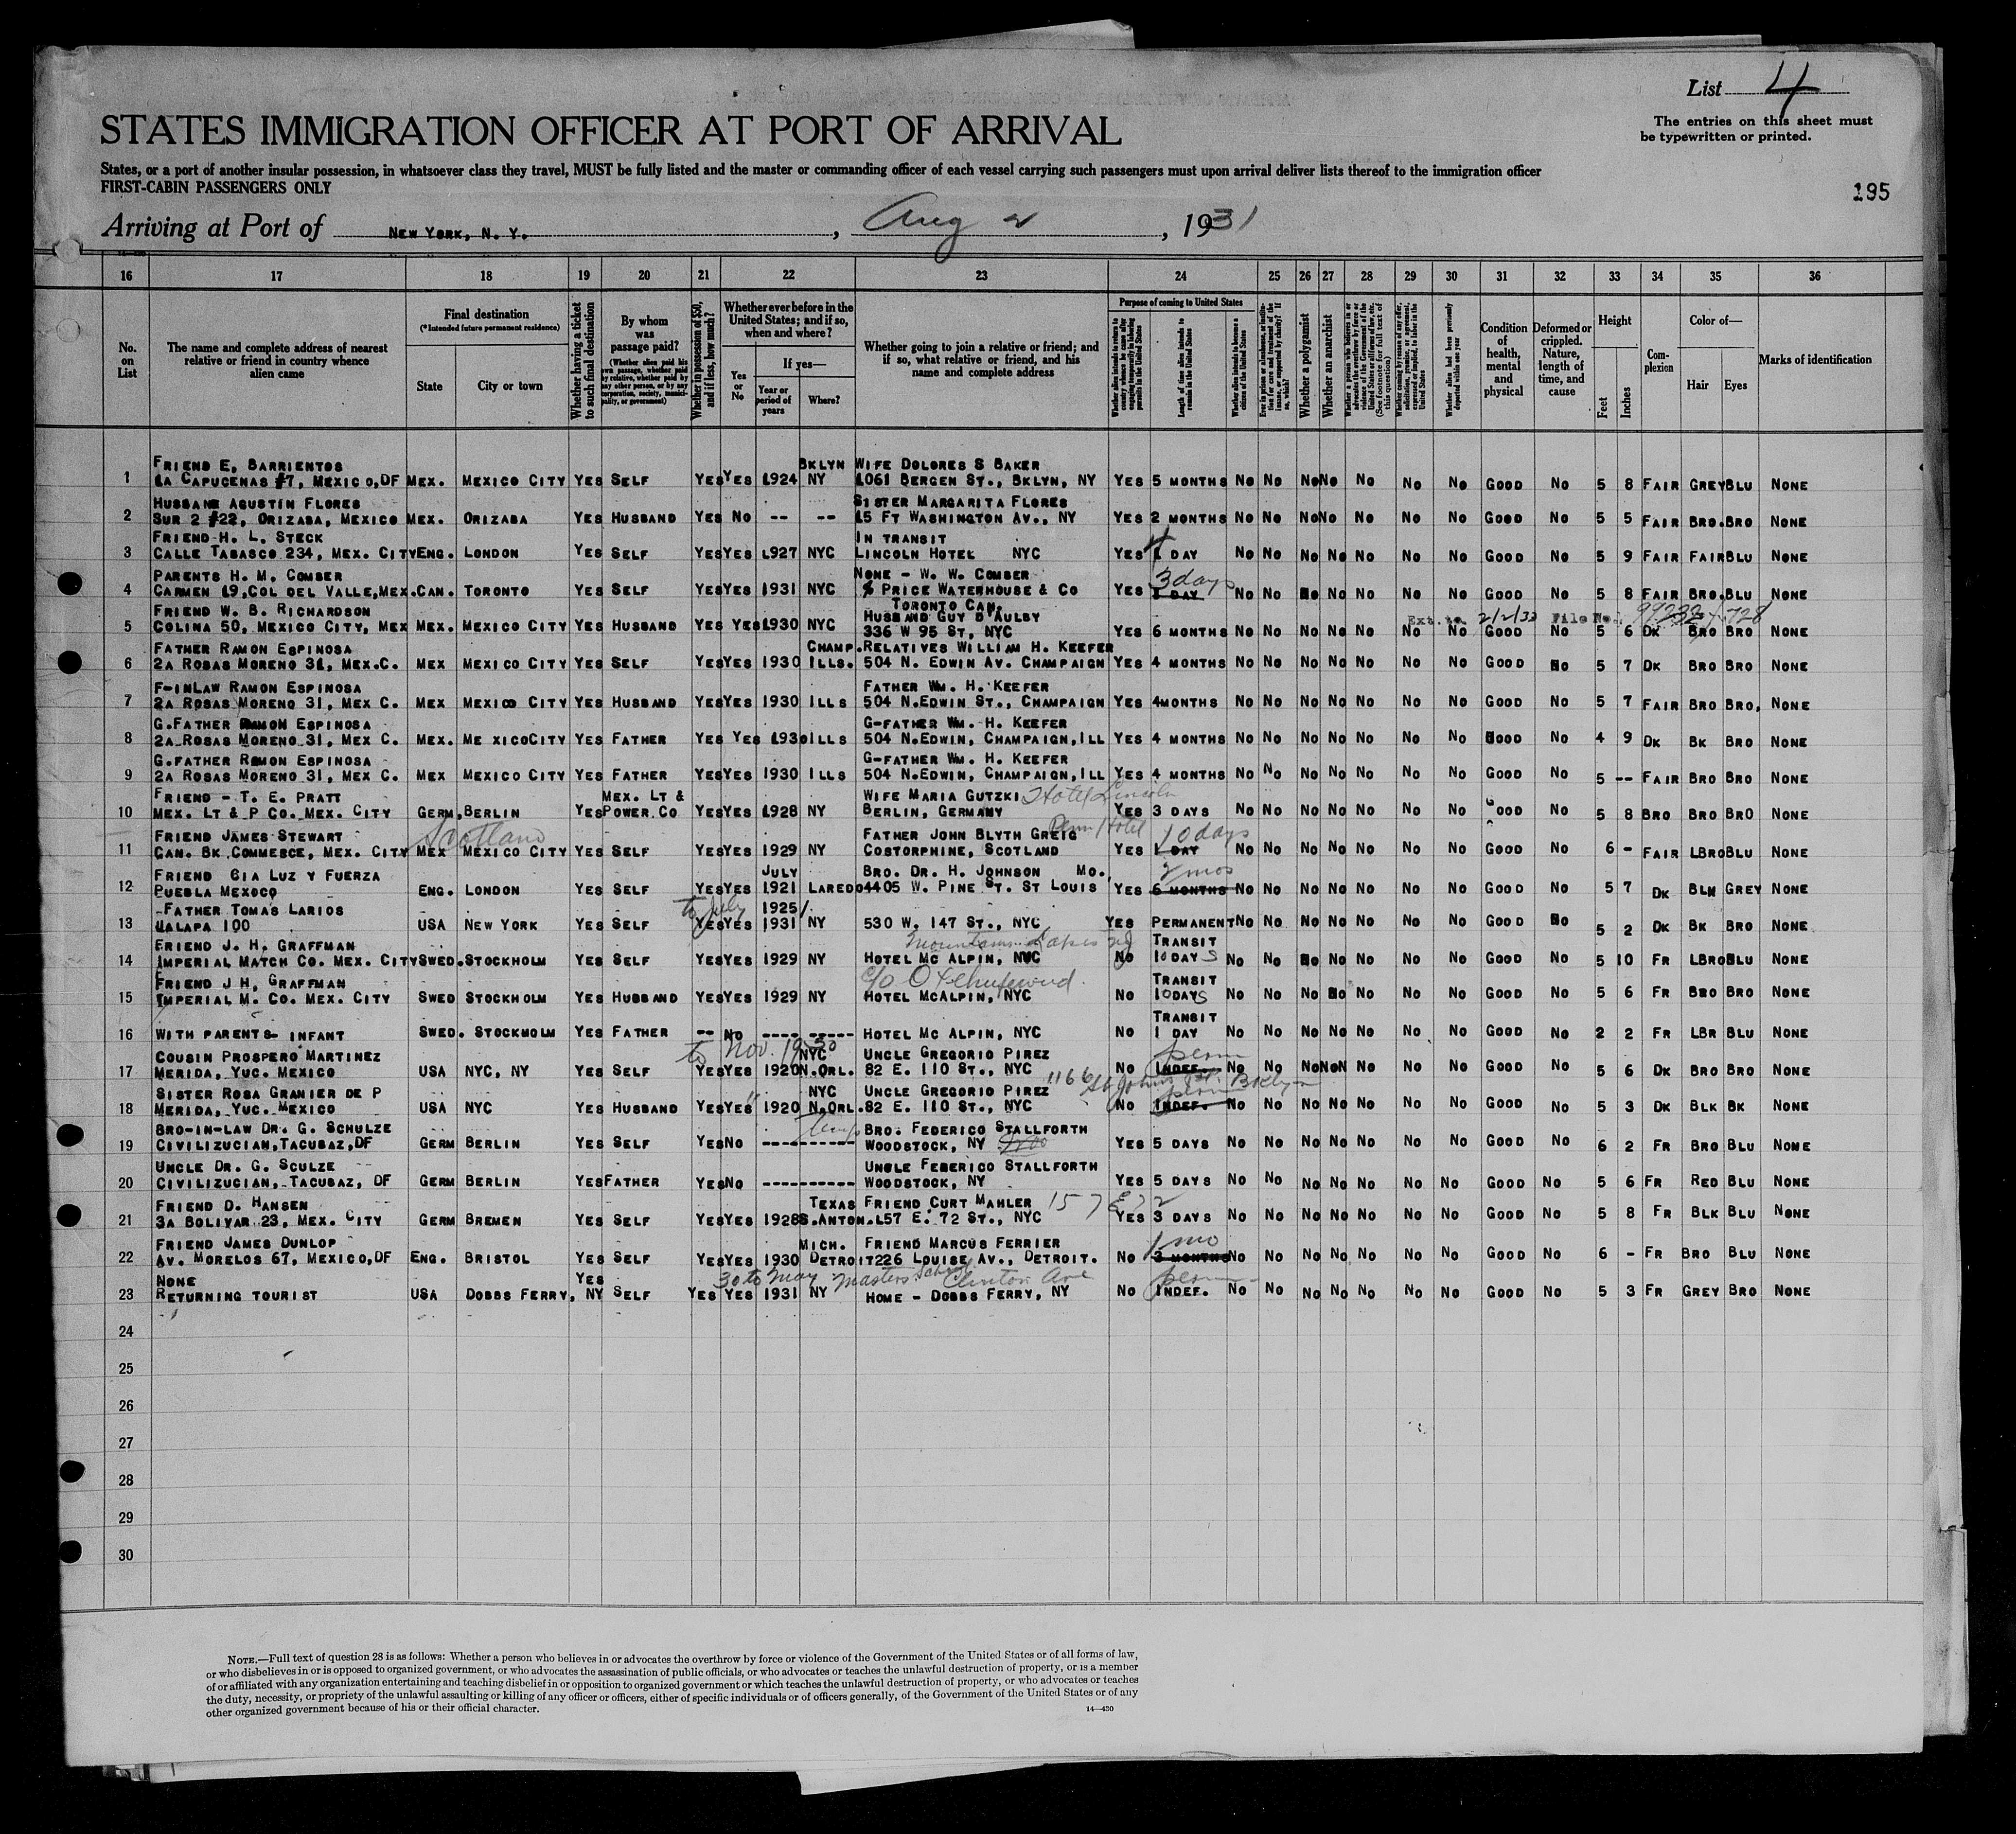 List 4
The entries on this sheet must
be typewritten or printed.
STATES IMMIGRATION OFFICER AT PORT OF ARRIVAL
States, or a port of another insular possession, in whatsoever class they travel, MUST be fully listed and the master or commanding officer of each vessel carrying such passengers must upon arrival deliver lists thereof to the immigration officer
FIRST-CABIN PASSENGERS ONLY
195
Arriving at Port of NEW YORK, N. Y. , Aug 2 , 1931
16 17 18 19 20 21 22 23 24 25 26 27 28 29 30 31 32 33 34 35 36
No. on List
The name and complete address of nearest relative or friend in country whence alien came
Final destination
(*Intended future permanent residence)
State
City or town
Whether having a ticket to such final destination
By whom was passage paid?
(Whether alien paid his own passage, whether paid by relative, whether paid by any other person, or by any corporation, society, municipality, or government)
Whether in possession of $50, and if less, how much?
Whether ever before in the United States; and if so, when and where?
Yes or No
If yes—
Year or period of years
Where?
Whether going to join a relative or friend; and if so, what relative or friend, and his name and complete address
Purpose of coming to United States
Length of time alien intends to remain in the United States
Whether alien intends to become a citizen of the United States
Whether a polygamist
Whether an anarchist
Whether alien had been previously deported within one year
Condition of health, mental and physical
Deformed or crippled. Nature, length of time, and cause
Height
Feet
Inches
Complexion
Color of—
Hair
Eyes
Marks of identification
FRIEND E, BARRIENTOS BKLYN WIFE DOLORES S BAKER
1 LA CAPUCENAS #7, MEXICO,DF MEX. MEXICO CITY YES SELF YES YES 1924 NY 1061 BERGEN ST., BKLYN, NY YES 5 MONTHS NO NO NO NO NO NO NO GOOD NO 5 8 FAIR GREY BLU NONE
HUSBAND AGUSTIN FLORES SISTER MARGARITA FLORES
2 SUR 2 #22, ORIZABA, MEXICO MEX. ORIZABA YES HUSBAND YES NO -- -- 15 FT WASHINGTON AV., NY YES 2 MONTHS NO NO NO NO NO NO NO GOOD NO 5 5 FAIR BRO. BRO NONE
FRIEND H. L. STECK IN TRANSIT
3 CALLE TABASCO 234, MEX. CITY ENG. LONDON YES SELF YES YES 1927 NYC LINCOLN HOTEL NYC YES 1 DAY NO NO NO NO NO NO NO GOOD NO 5 9 FAIR FAIR BLU NONE
PARENTS H. M. COMBER NONE - W. W. COMBER 3 days
4 CARMEN 19,COL DEL VALLE,MEX. CAN. TORONTO YES SELF YES YES 1931 NYC % PRICE WATERHOUSE & CO YES 1 DAY NO NO NO NO NO NO NO GOOD NO 5 8 FAIR BRO. BLU NONE
TORONTO CAN.
FRIEND W. B. RICHARDSON HUSBAND GUY D'AULBY Ext. to 2/2/32 File No.
5 COLINA 50, MEXICO CITY, MEX MEX. MEXICO CITY YES HUSBAND YES YES 1930 NYC 336 W 95 ST, NYC YES 6 MONTHS NO NO NO NO NO NO NO GOOD NO 5 6 DK BRO BRO NONE
FATHER RAMON ESPINOSA CHAMP. RELATIVES WILLIAM H. KEEFER
6 2A ROSAS MORENO 31, MEX.C. MEX MEXICO CITY YES SELF YES YES 1930 ILLS. 504 N. EDWIN AV. CHAMPAIGN YES 4 MONTHS NO NO NO NO NO NO NO GOOD NO 5 7 DK BRO BRO NONE
F-INLAW RAMON ESPINOSA FATHER WM. H. KEEFER
7 2A ROSAS MORENO 31, MEX C. MEX MEXICO CITY YES HUSBAND YES YES 1930 ILLS 504 N.EDWIN ST., CHAMPAIGN YES 4MONTHS NO NO NO NO NO NO NO GOOD NO 5 7 FAIR BRO BRO, NONE
G.FATHER RAMON ESPINOSA G-FATHER WM. H. KEEFER
8 2A ROSAS MORENO 31, MEX C. MEX. ME XICOCITY YES FATHER YES YES 1930 ILLS 504 N.EDWIN, CHAMPAIGN,ILL YES 4 MONTHS NO NO NO NO NO NO NO GOOD NO 4 9 DK BK BRO NONE
G.FATHER RAMON ESPINOSA G-FATHER WM. H. KEEFER
9 2A ROSAS MORENO 31, MEX C. MEX MEXICO CITY YES FATHER YES YES 1930 ILLS 504 N.EDWIN, CHAMPAIGN,ILL YES 4 MONTHS NO NO NO NO NO NO NO GOOD NO 5 -- FAIR BRO BRO NONE
FRIEND - T. E. PRATT MEX. LT & WIFE MARIA GUTZKI Hotel Lincoln
10 MEX. LT & P CO. MEX. CITY GERM, BERLIN YES POWER.CO YES YES 1928 NY BERLIN, GERMANY YES 3 DAYS NO NO NO NO NO NO NO GOOD NO 5 8 BRO BRO BRO NONE
FRIEND JAMES STEWART Scotland FATHER JOHN BLYTH GREIG Penn Hotel 10 days
11 CAN. BK COMMERCE, MEX. CITY MEX MEXICO CITY YES SELF YES YES 1929 NY COSTORPHINE, SCOTLAND YES 1 DAY NO NO NO NO NO NO NO GOOD NO 6 - FAIR LBRO BLU NONE
FRIEND CIA LUZ Y FUERZA JULY BRO. DR. H. JOHNSON MO. 2 mos
12 PUEBLA MEXOCO ENG. LONDON YES SELF YES YES 1921 LAREDO 4405 W. PINE ST. ST LOUIS YES 6 MONTHS NO NO NO NO NO NO NO GOOD NO 5 7 DK BLK GREY NONE
FATHER TOMAS LARIOS to July 1925/
13 JALAPA 100 USA NEW YORK YES SELF YES YES 1931 NY 530 W. 147 ST., NYC YES PERMANENT NO NO NO NO NO NO NO GOOD NO 5 2 DK BK BRO NONE
FRIEND J. H. GRAFFMAN TRANSIT
14 IMPERIAL MATCH CO. MEX. CITY SWED. STOCKHOLM YES SELF YES YES 1929 NY HOTEL MC ALPIN, NYC NO 10 DAYS NO NO NO NO NO NO NO GOOD NO 5 10 FR LBRO BLU NONE
FRIEND J H, GRAFFMAN TRANSIT
15 IMPERIAL M. CO. MEX. CITY SWED STOCKHOLM YES HUSBAND YES YES 1929 NY HOTEL MCALPIN, NYC NO 10DAYS NO NO NO NO NO NO NO GOOD NO 5 6 FR BRO BRO NONE
TRANSIT
16 WITH PARENTS- INFANT SWED. STOCKHOLM YES FATHER -- NO ---- ----- HOTEL MC ALPIN, NYC NO 1 DAY NO NO NO NO NO NO NO GOOD NO 2 2 FR LBR BLU NONE
COUSIN PROSPERO MARTINEZ to Nov. 1930 NYC UNCLE GREGORIO PIREZ perm
17 MERIDA, YUC. MEXICO USA NYC, NY YES SELF YES YES 1920 N.ORL. 82 E. 110 ST., NYC NO INDEF. NO NO NO NO NO NO NO GOOD NO 5 6 DK BRO BRO NONE
SISTER ROSA GRANIER DE P " NYC UNCLE GREGORIO PIREZ 1166 St Johns Pl. Bklyn perm
18 MERIDA, YUC. MEXICO USA NYC YES HUSBAND YES YES 1920 N.ORL. 82 E. 110 ST., NYC NO INDEF. NO NO NO NO NO NO NO GOOD NO 5 3 DK BLK BK NONE
BRO-IN-LAW DR. G. SCHULZE BRO. FEDERICO STALLFORTH
19 CIVILIZUCIAN,TACUBAZ,DF GERM BERLIN YES SELF YES NO ---------- WOODSTOCK, NY YES 5 DAYS NO NO NO NO NO NO NO GOOD NO 6 2 FR BRO BLU NONE
UNCLE DR. G. SCULZE UNCLE FEBERICO STALLFORTH
20 CIVILIZUCIAN, TACUBAZ, DF GERM BERLIN YES FATHER YES NO ---------- WOODSTOCK, NY YES 5 DAYS NO NO NO NO NO NO NO GOOD NO 5 6 FR RED BLU NONE
FRIEND D. HANSEN TEXAS FRIEND CURT MAHLER 157 E 72
21 3A BOLIVAR 23, MEX. CITY GERM BREMEN YES SELF YES YES 1928 S.ANTON. 157 E. 72 ST., NYC YES 3 DAYS NO NO NO NO NO NO NO GOOD NO 5 8 FR BLK BLU NONE
FRIEND JAMES DUNLOP MICH. FRIEND MARCUS FERRIER 1 mo
22 AV. MORELOS 67, MEXICO,DF ENG. BRISTOL YES SELF YES YES 1930 DETROIT 226 LOUISE AV., DETROIT. NO 3 MONTHS NO NO NO NO NO NO NO GOOD NO 6 - FR BRO BLU NONE
NONE YES 30 to May Masters School Clinton Ave perm
23 RETURNING TOURIST USA DOBBS FERRY, NY SELF YES YES 1931 NY HOME - DOBBS FERRY, NY NO INDEF. NO NO NO NO NO NO NO GOOD NO 5 3 FR GREY BRO NONE
24
25
26
27
28
29
30
NOTE.—Full text of question 28 is as follows: Whether a person who believes in or advocates the overthrow by force or violence of the Government of the United States or of all forms of law,
or who disbelieves in or is opposed to organized government, or who advocates the assassination of public officials, or who advocates or teaches the unlawful destruction of property, or is a member
of or affiliated with any organization entertaining and teaching disbelief in or opposition to organized government or which teaches the unlawful destruction of property, or who advocates or teaches
the duty, necessity, or propriety of the unlawful assaulting or killing of any officer or officers, either of specific individuals or of officers generally, of the Government of the United States or of any
other organized government because of his or their official character.
14—430